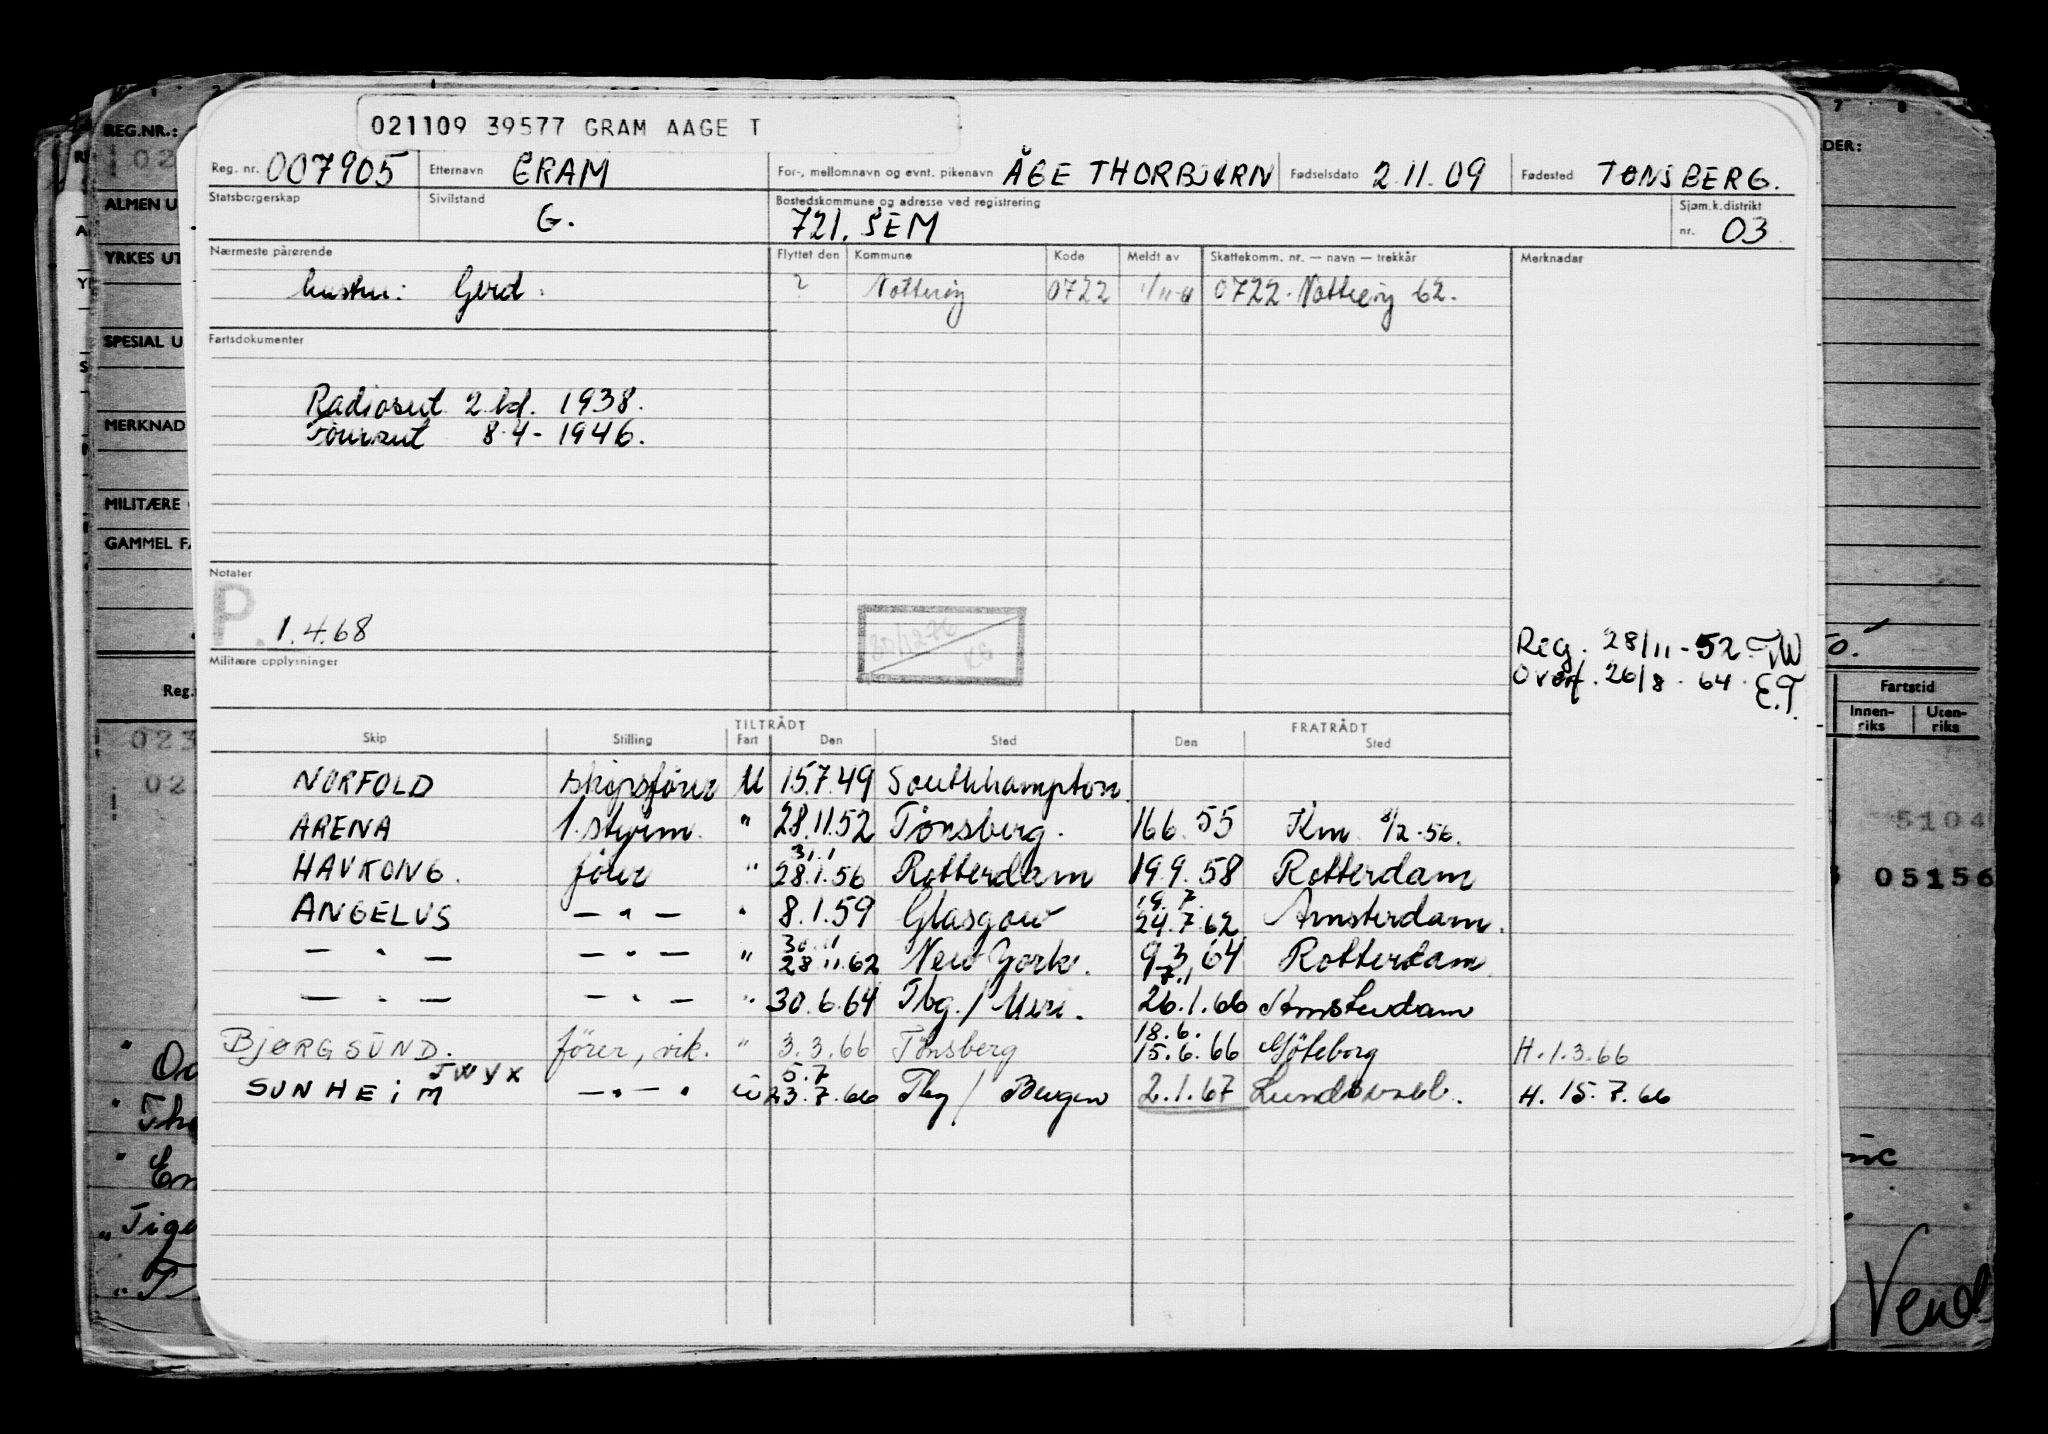 021109 39577 GRAM AAGE T
Reg. nr. 007905 Etternavn GRAM For-, mellomnavn og evnt. pikenavn ÅGE THORBJØRN Fødselsdato 2.11.09 Fødested TØNSBERG.
Statsborgerskap Sivilstand G. Bostedskommune og adresse ved registrering 721. SEM Sjøm.k.distrikt nr. 03
Nærmeste pårørende Flyttet den Kommune Kode Meldt av Skattekomm. nr. — navn — trekkår Merknader
hustru: Gerd. ? Nøtterøy 0722 0722. Nøtterøy 62.
Fartsdokumenter
Radiosert 2 kl. 1938.
8.4-1946.
Notater
P. 1.4.68
30/12-76
KG
Militære opplysninger
Reg. 28/11-52 TW
Overf. 26/8-64. E.T.
TILTRÅDT FRATRÅDT
Skip Stilling Fart Den Sted Den Sted
NORFOLD skipsfører U 15.7.49 Southhampton
ARENA 1. styrm. " 28.11.52 Tønsberg. 16.6.55 Km 8/2-56.
31.1
HAVKONG. fører " 28.1.56 Rotterdam 19.9.58 Rotterdam
19.7.
ANGELUS — " — " 8.1.59 Glasgow 24.7.62 Amsterdam.
30.11
— " — — " — " 28.11.62 New York. 9.3.64 Rotterdam
7.1
— " — — " — " 30.6.64 Tbg./ 26.1.66 Amsterdam
18.6.
BJØRGSUND. fører, vik. " 3.3.66 Tønsberg 15.6.66 Göteborg H. 1.3.66
JWYX 5.7
SUNHEIM — " — " U 23.7.66 Tbg / Bergen 2.1.67 H. 15.7.66
REG.NR.:
ALMEN U
YRKES UT
SPESIAL U
MERKNAD
MILITÆRE
GAMMEL FA
Reg.
023
02
Tho
Tiga
DER:
Fartstid
Innen-riks Uten-riks
5104
05156
Vend